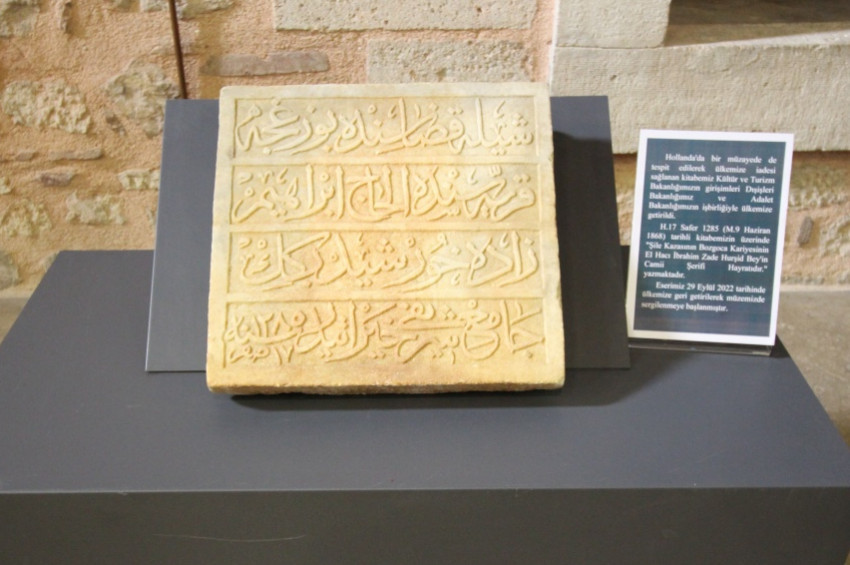 شیله قضاسنده بوزغجه
قریه سنده الحاج ابراهیم
زاده خورشید بكك
جامع شریفی خیراتیدر سنه ١٢٨٥
١٧ صفر
Hollanda'da bir müzayede de
tespit edilerek ülkemize iadesi
sağlanan kitabemiz Kültür ve Turizm
Bakanlığımızın girişimleri Dışişleri
Bakanlığımız ve Adalet
Bakanlığımızın işbirliğiyle ülkemize
getirildi.
H.17 Safer 1285 (M.9 Haziran
1868) tarihli kitabemizin üzerinde
"Şile Kazasının Bozgoca Kariyesinin
El Hacı İbrahim Zade Hurşid Bey'in
Camii Şerifi Hayratıdır."
yazmaktadır.
Eserimiz 29 Eylül 2022 tarihinde
ülkemize geri getirilerek müzemizde
sergilenmeye başlanmıştır.